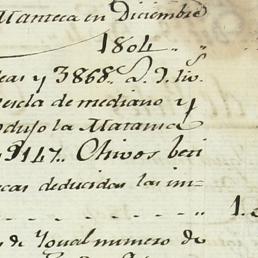 Manteca en Diciembre
1804..
cas y 3868.. @. J. liv.
encia de mediano y
odujo la Matanza
9147.. Chivos beti
cas deducidas las in-
1.
s de Ygual numero de